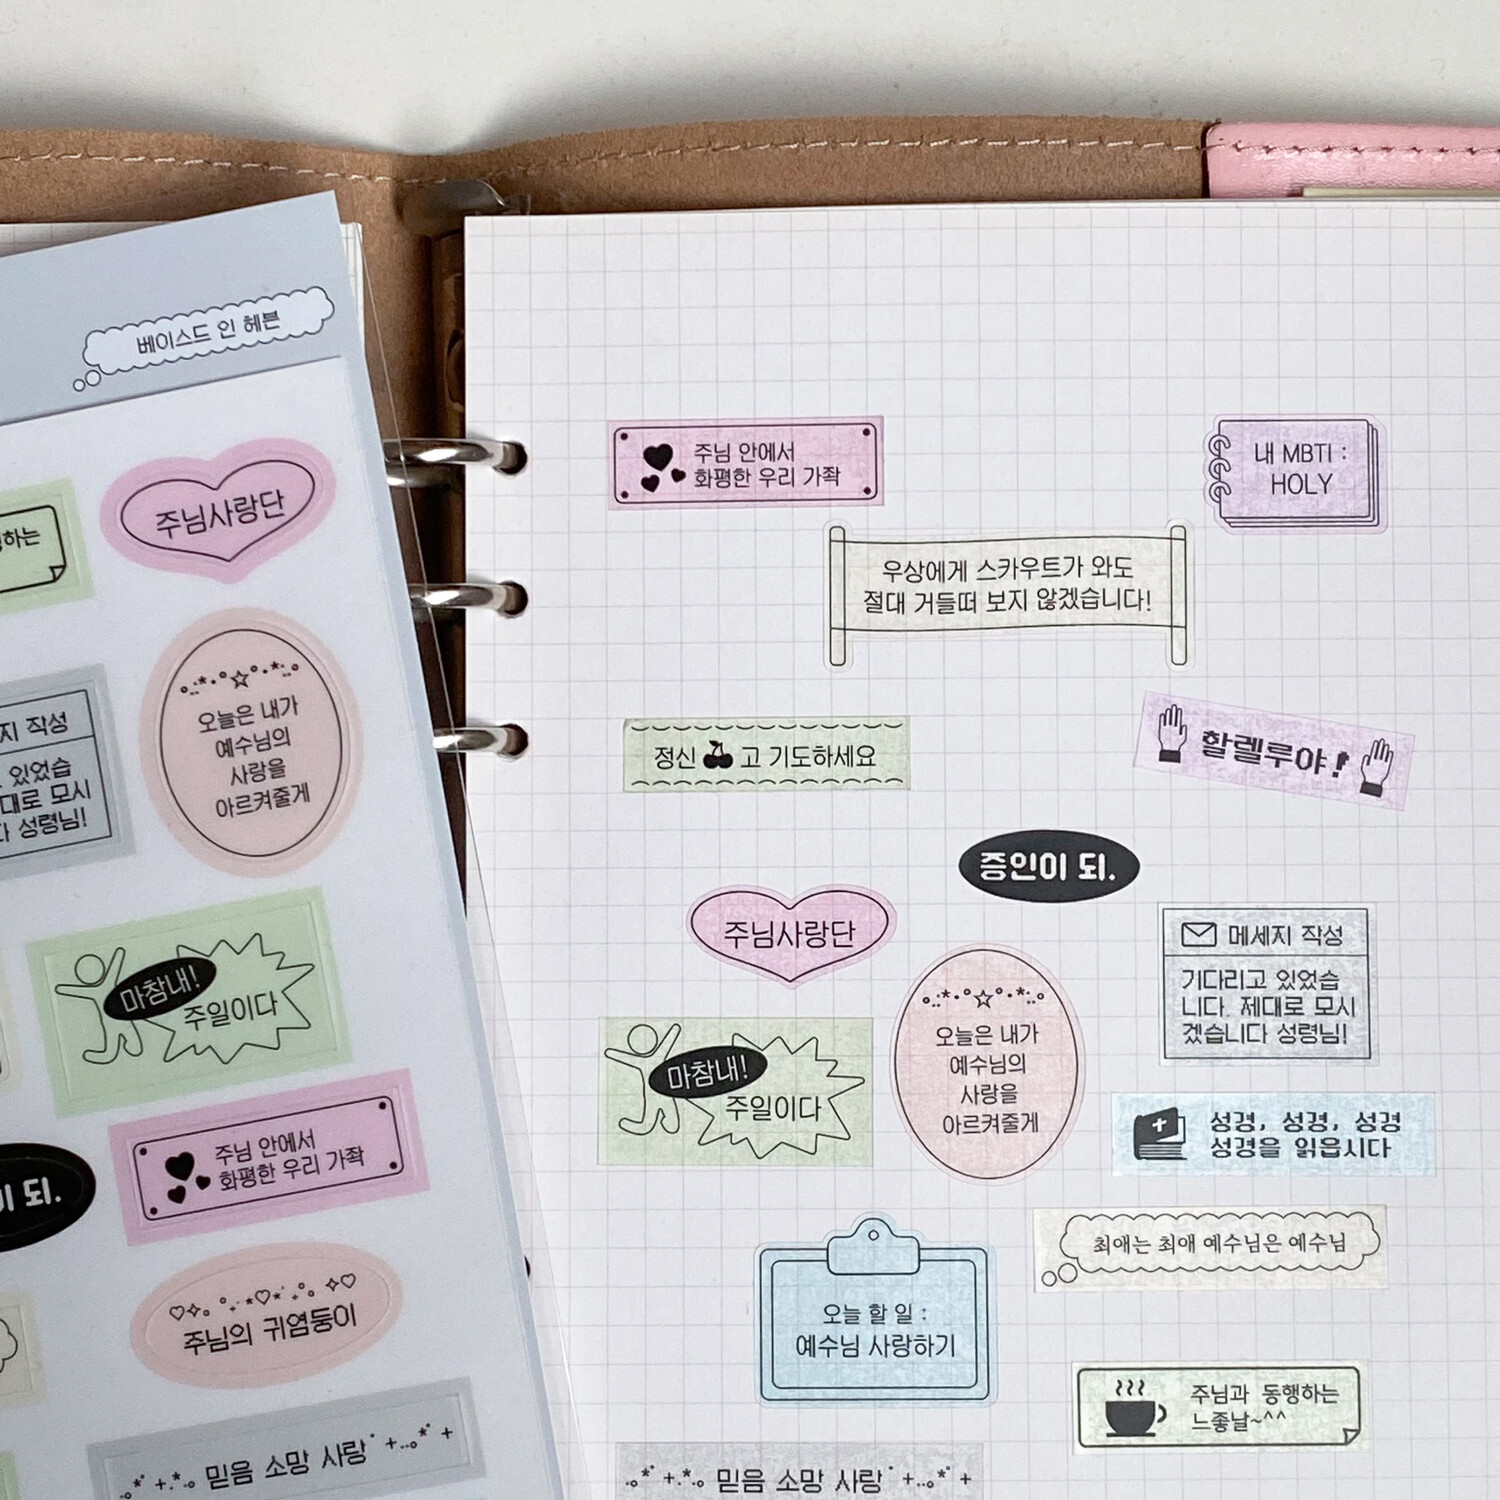 베이스드 인 헤븐
하는
주님사랑단
지 작성
있었습
대로 모시
성령님!
오늘은 내가
예수님의
사랑을
아르켜줄게
마참내!
주일이다
주님 안에서
화평한 우리 가좍
이 되.
주님의 귀염둥이
믿음 소망 사랑
주님 안에서
화평한 우리 가좍
내 MBTI :
HOLY
우상에게 스카우트가 와도
절대 거들떠 보지 않겠습니다!
정신 고 기도하세요
할렐루야!
증인이 되.
주님사랑단
메세지 작성
기다리고 있었습
니다. 제대로 모시
겠습니다 성령님!
마참내!
주일이다
오늘은 내가
예수님의
사랑을
아르켜줄게
성경, 성경, 성경
성경을 읽읍시다
최애는 최애 예수님은 예수님
오늘 할 일 :
예수님 사랑하기
주님과 동행하는
느좋날~^^
믿음 소망 사랑